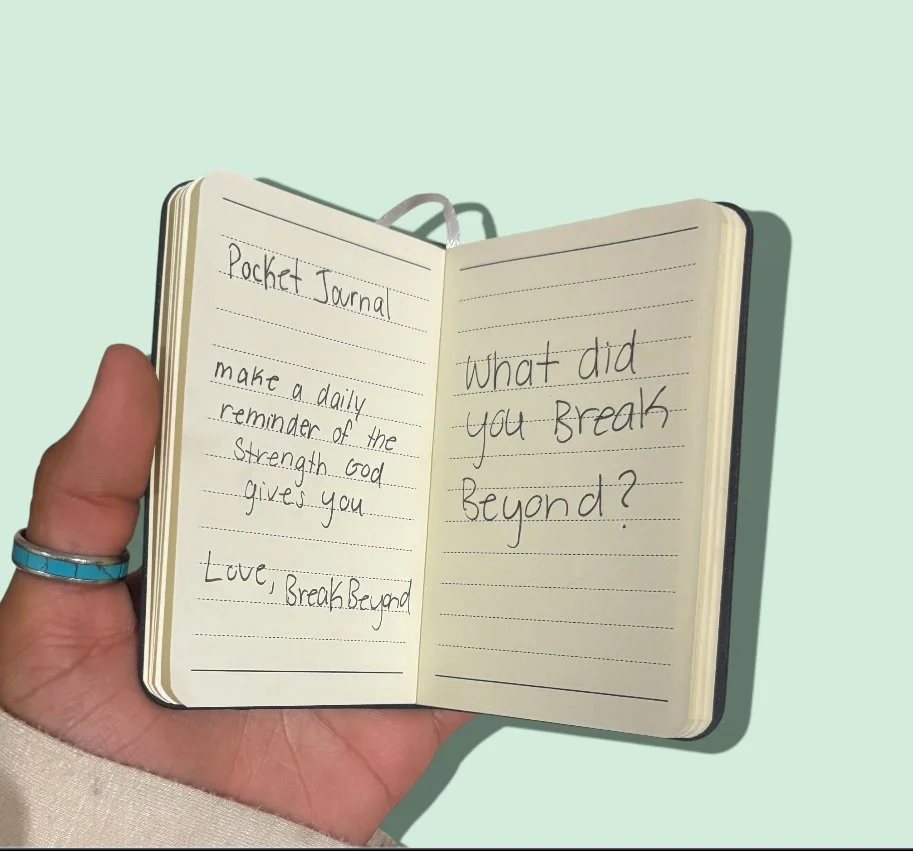 Pocket Journal
make a daily
reminder of the
Strength God
gives you
Love, BreakBeyond
What did
you Break
Beyond?